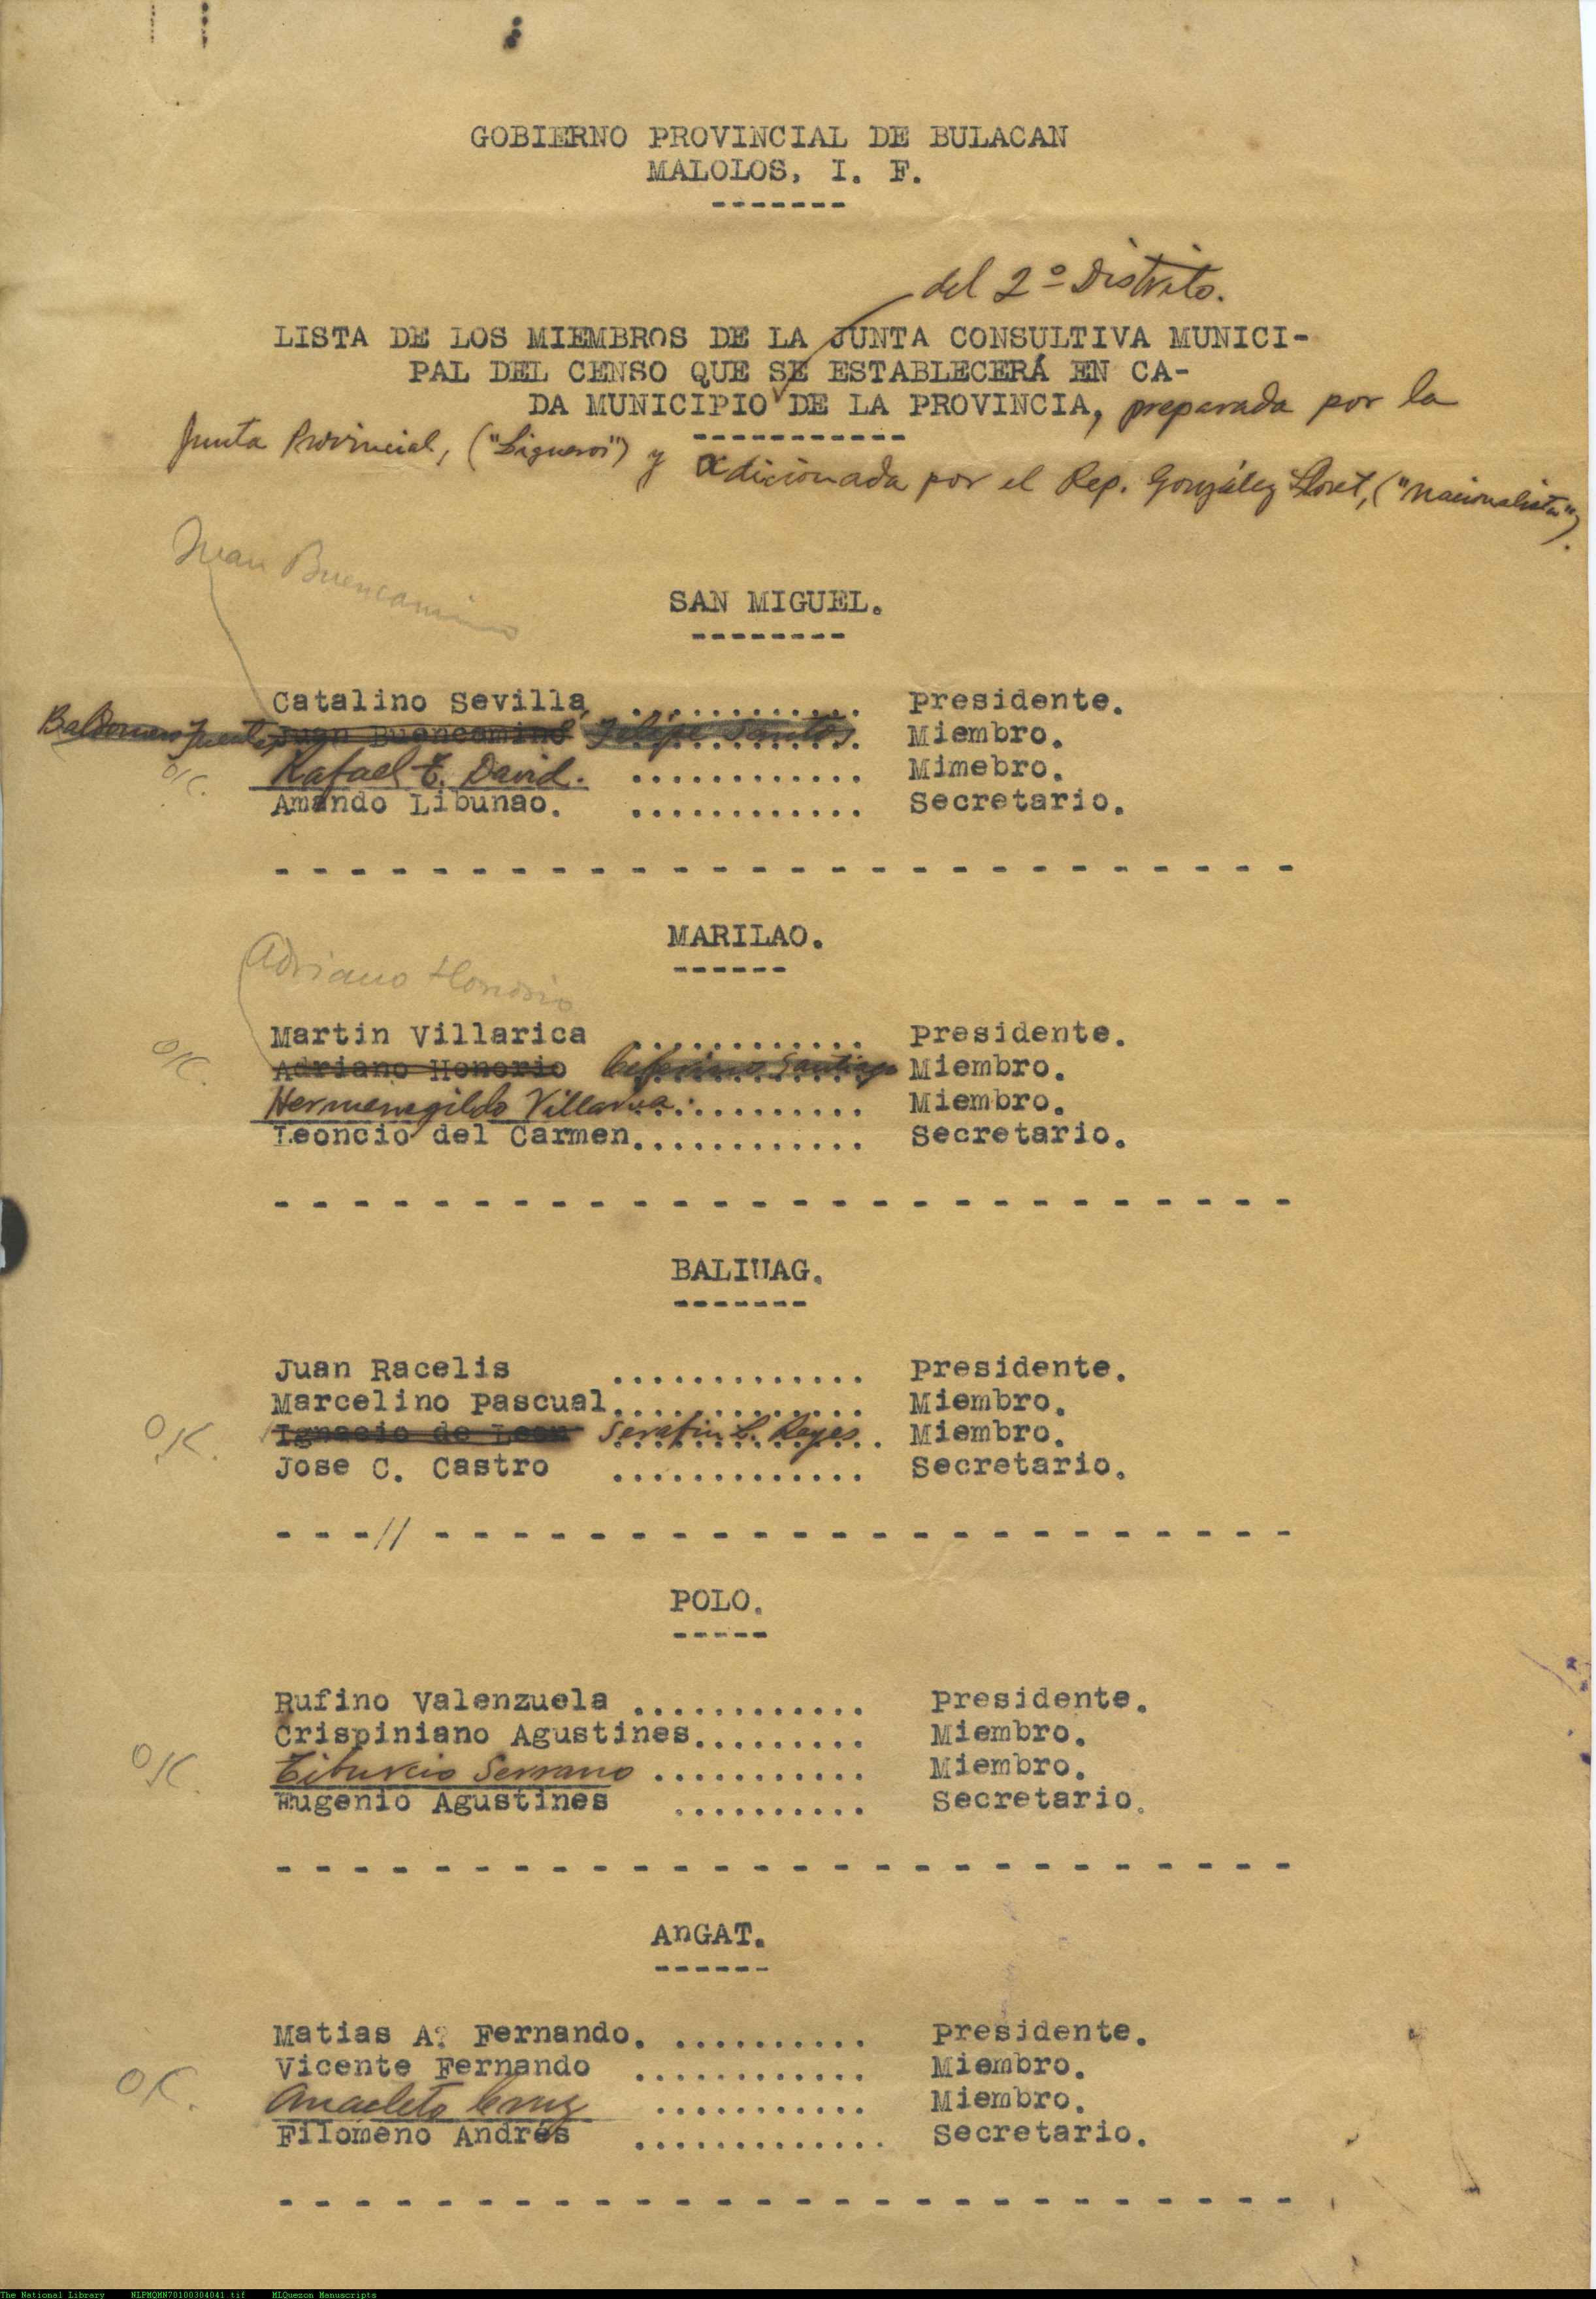 GOBIERNO PROVINCIAL DE BULACAN
MALOLOS, I. F.
-------
del 2º Distrito.
LISTA DE LOS MIEMBROS DE LA JUNTA CONSULTIVA MUNICI-
PAL DEL CENSO QUE SE ESTABLECERÁ EN CA-
DA MUNICIPIO DE LA PROVINCIA, preparada por la
-----------
Junta Provincial, ("Ligueros") y adicionada por el Rep. González Lloret, ("Nacionalista").
Juan Buencamino
SAN MIGUEL.
--------
Catalino Sevilla ............ Presidente.
Baldomero Juan Buencamino Felipe Santos Miembro.
OK. Rafael E. David. ............ Mimebro.
Amando Libunao. ............ Secretario.
- - - - - - - - - - - - - - - - - - - - - - - - - -
MARILAO.
------
Adriano Honorio
OK. Martin Villarica ............ Presidente.
Adriano Honorio Ceferino Santiago Miembro.
Hermenegildo Villarica............ Miembro.
Leoncio del Carmen............ Secretario.
- - - - - - - - - - - - - - - - - - - - - - - - - -
BALIUAG.
-------
Juan Racelis ............. Presidente.
Marcelino Pascual............. Miembro.
OK. Ignacio de Leon Serafin L. Reyes. Miembro.
Jose C. Castro ............. Secretario.
- - -// - - - - - - - - - - - - - - - - - - - - - -
POLO.
-----
Rufino Valenzuela ............ Presidente.
Crispiniano Agustines......... Miembro.
OK. Tiburcio Serrano ........... Miembro.
Eugenio Agustines .......... Secretario.
- - - - - - - - - - - - - - - - - - - - - - - - - -
AnGAT.
------
Matias A? Fernando. .......... Presidente.
Vicente Fernando ............ Miembro.
OK. Anacleto Cruz ........... Miembro.
Filomeno Andrés ............. Secretario.
- - - - - - - - - - - - - - - - - - - - - - - - - -
The National Library NLPMQMN70100304041.tif MLQuezon Manuscripts